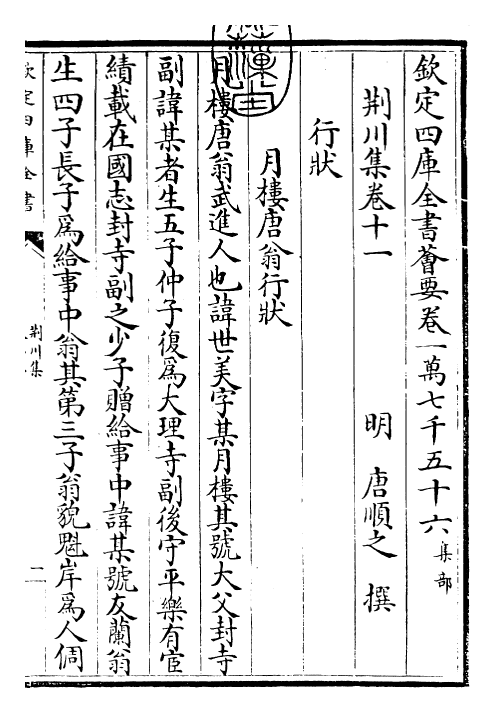 欽定四庫全書薈要卷一萬七千五十六集部
荆川集卷十一
明 唐順之 撰
行狀
月樓唐翁行狀
月樓唐翁武進人也諱世美字某月樓其號大父封寺
副諱某者生五子仲子復為大理寺副後守平樂有宦
績載在國志封寺副之少子贈給事中諱某號友蘭翁
生四子長子為給事中翁其第三子翁貌魁岸為人倜
欽定四庫全書
荆川集